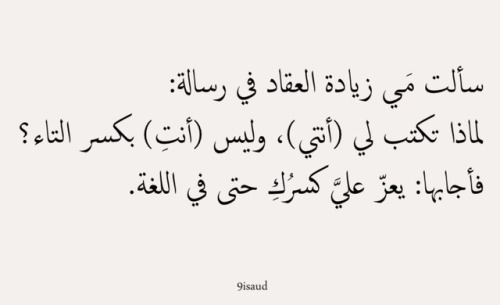 سألت مَي زيادة العقاد في رسالة:
لماذا تكتب لي (أنتي)، وليس (أنتِ) بكسر التاء؟
فأجابها: يعزّ عليَّ كسرُكِ حتى في اللغة.
9isaud